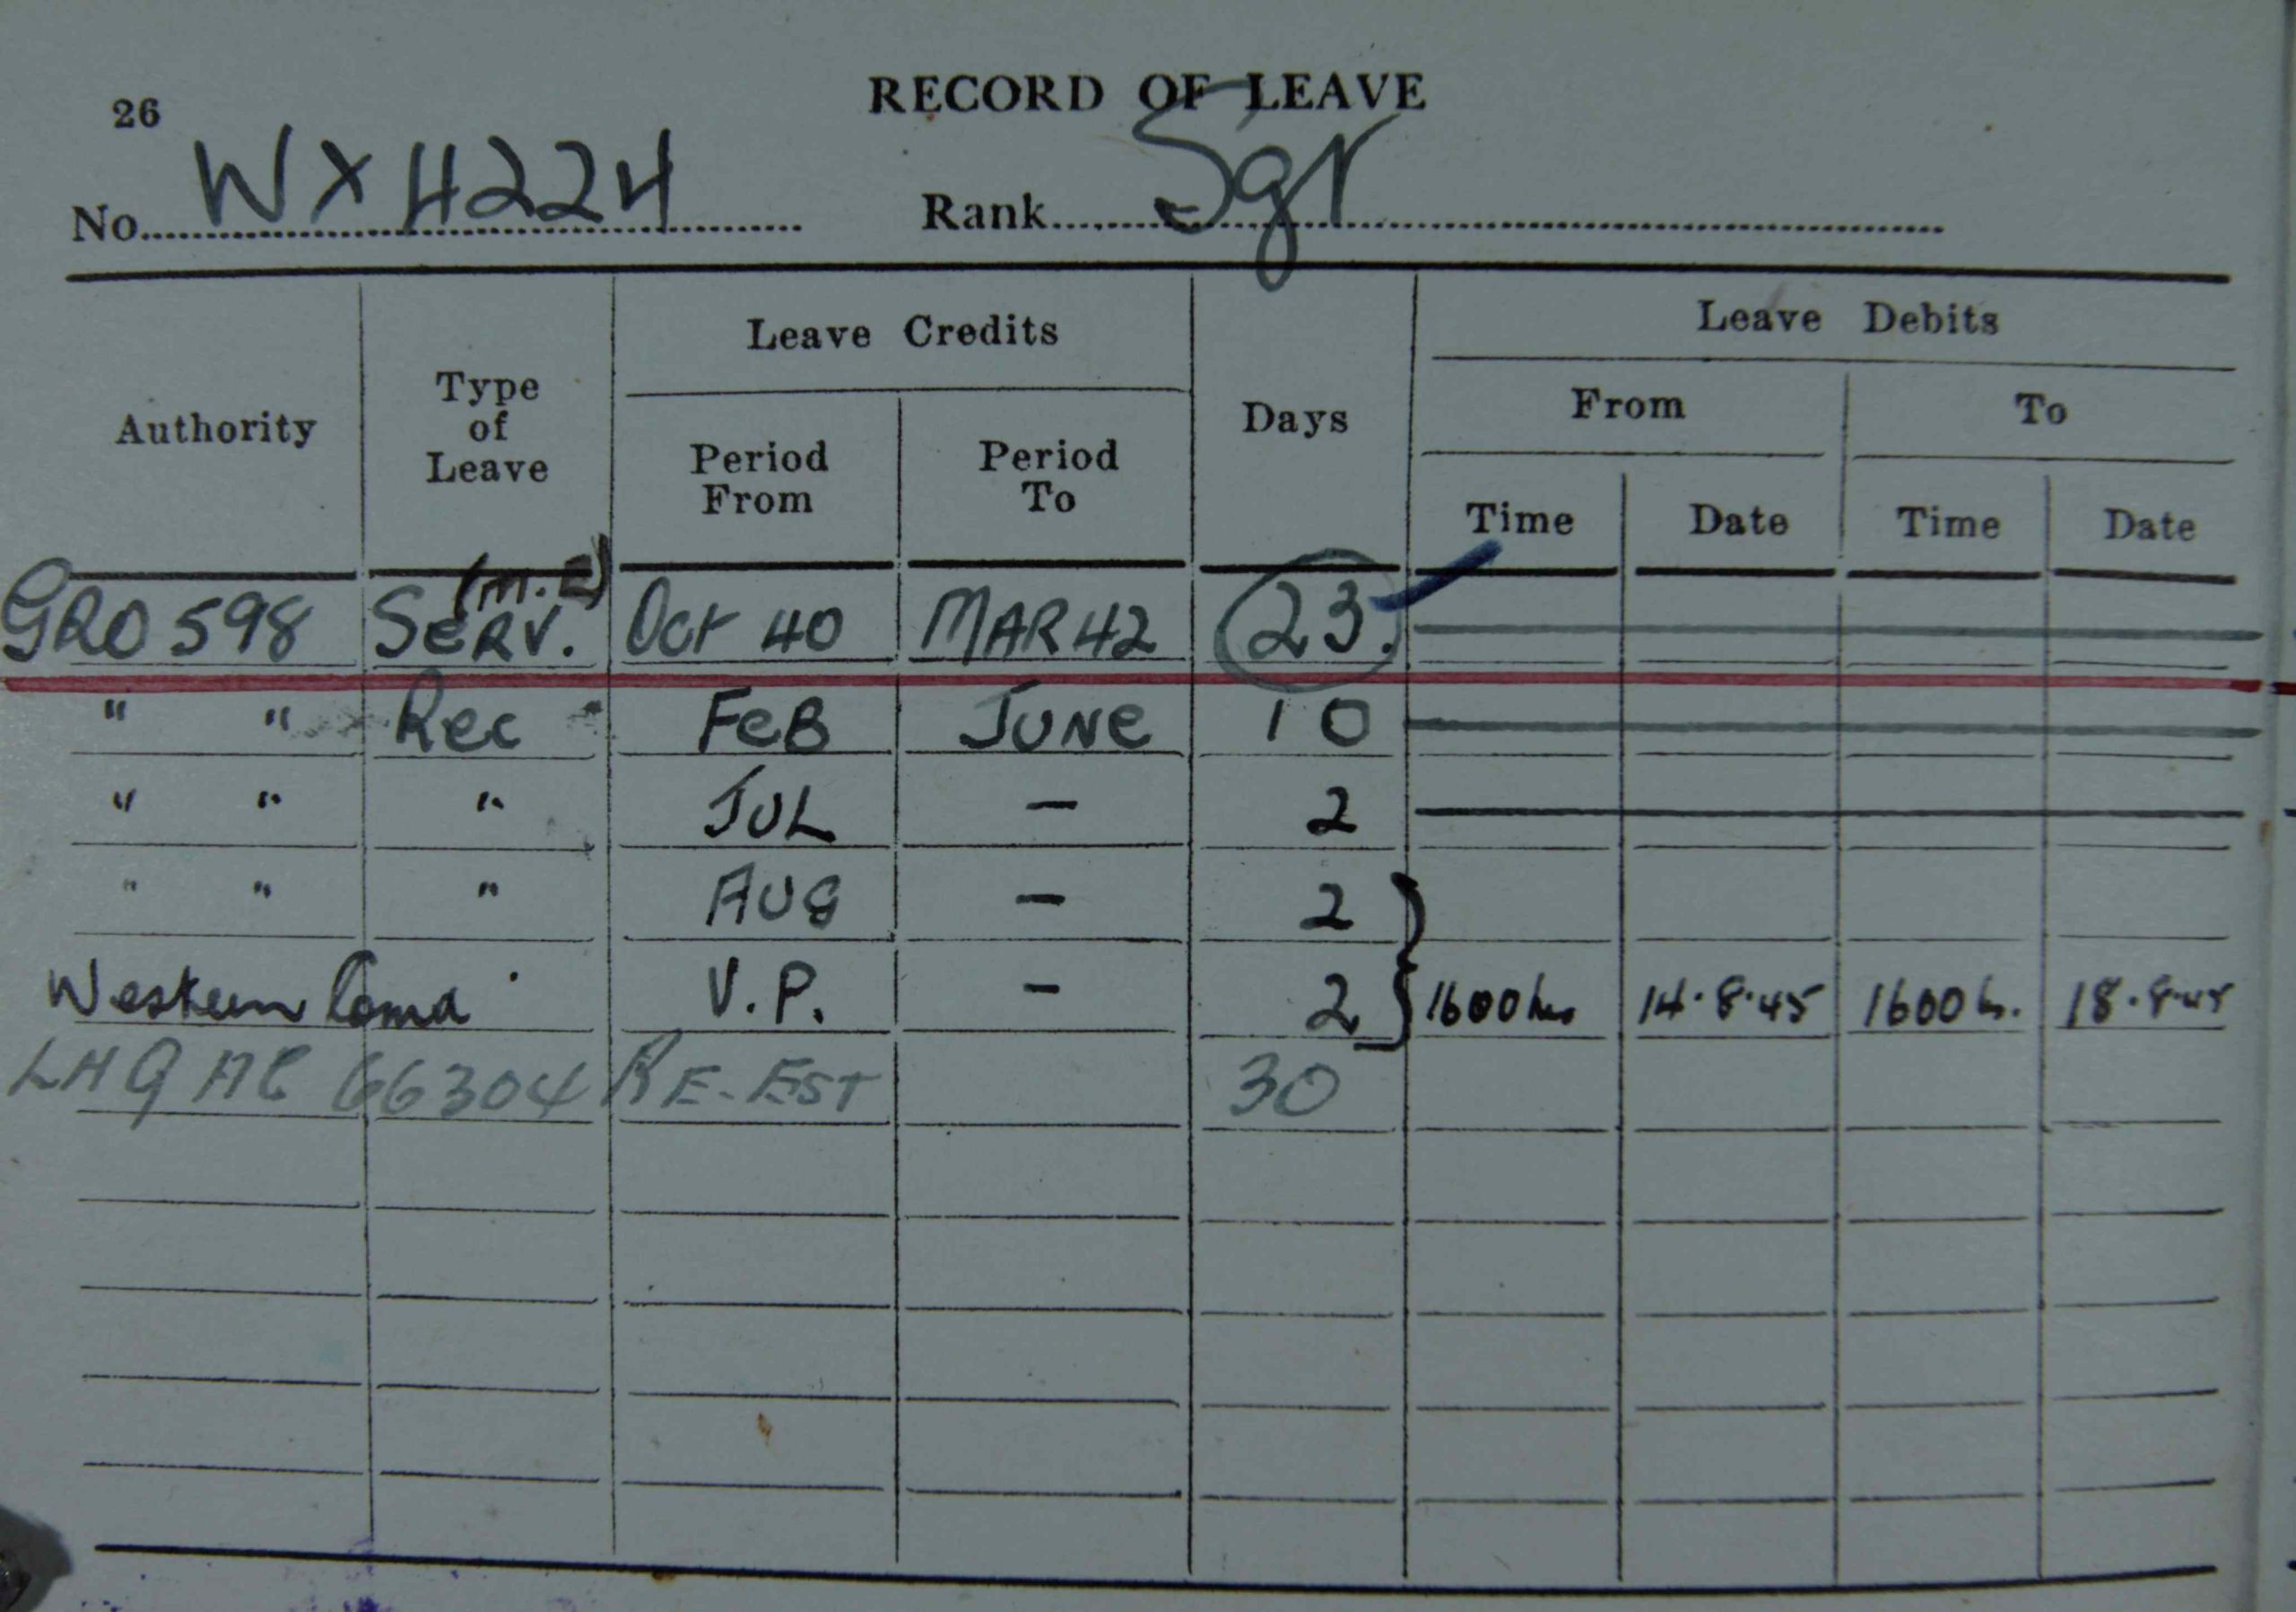 26
RECORD OF LEAVE
No. WX4224 Rank Sgt
Authority Type of Leave Leave Credits Days Leave Debits
Period From Period To From To
Time Date Time Date
GRO 598 SERV. (M.E) Oct 40 MAR 42 23.
" " Rec " FEB JUNE 10
" " " JUL — 2
" " " AUG — 2
Western Comd V.P. — 2 } 1600 hrs 14.8.45 1600 h. 18.8.45
LHQ AC 66304 RE-EST 30